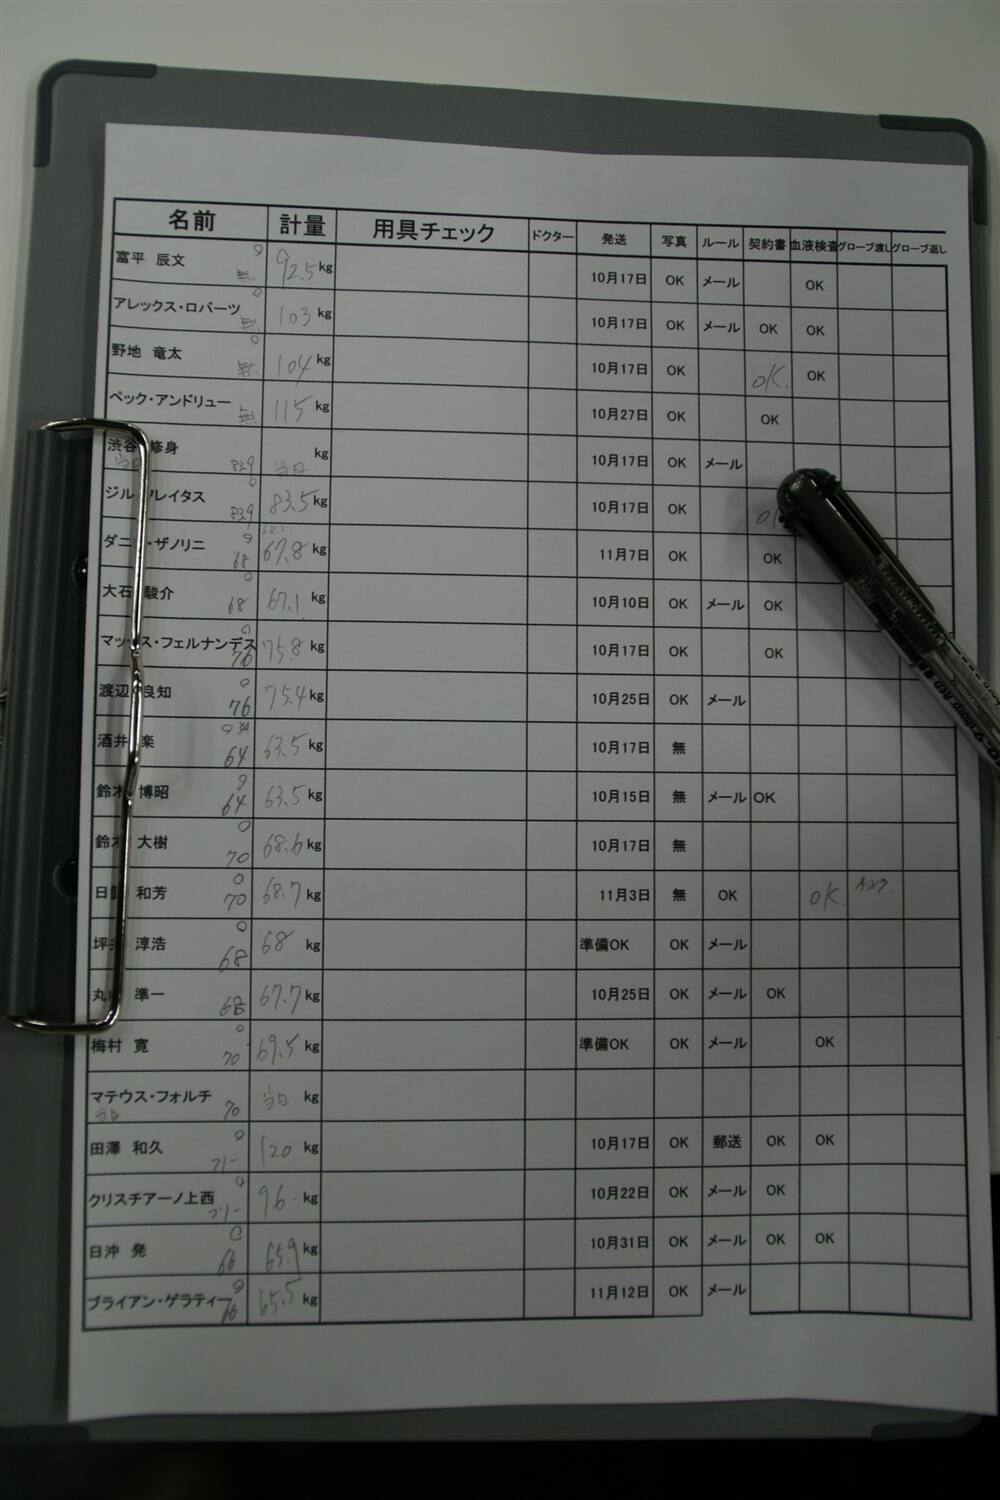 名前 計量 用具チェック ドクター 発送 写真 ルール 契約書 血液検査 グローブ渡し グローブ返し
富平 辰文 無 92.5kg 10月17日 OK メール OK
アレックス・ロバーツ 無 103 kg 10月17日 OK メール OK OK
野地 竜太 無 104 kg 10月17日 OK OK. OK
ペック・アンドリュー 無 115 kg 10月27日 OK OK
渋谷 修身 当日 83.9 当日 kg 10月17日 OK メール
ジル レイタス 83.9 83.5kg 10月17日 OK
ダニ ザノリニ 68 67.8 kg 11月7日 OK OK
大石 駿介 68 67.1 kg 10月10日 OK メール OK
マックス・フェルナンデス 76 75.8 kg 10月17日 OK OK
渡辺 良知 76 75.4kg 10月25日 OK メール
酒井 楽 64 63.5 kg 10月17日 無
鈴木 博昭 64 63.5 kg 10月15日 無 メール OK
鈴木 大樹 70 68.6 kg 10月17日 無
日 和芳 70 68.7 kg 11月3日 無 OK OK.
坪井 淳浩 68 68 kg 準備OK OK メール
丸 準一 68 67.7 kg 10月25日 OK メール OK
梅村 寛 70 69.5 kg 準備OK OK メール OK
マテウス・フォルチ 当日 70 当日 kg
田澤 和久 フリー 120 kg 10月17日 OK 郵送 OK OK
クリスチアーノ上西 フリー 96 kg 10月22日 OK メール OK
日沖 発 66 65.9 kg 10月31日 OK メール OK OK
ブライアン・ゲラティー 66 65.5 kg 11月12日 OK メール